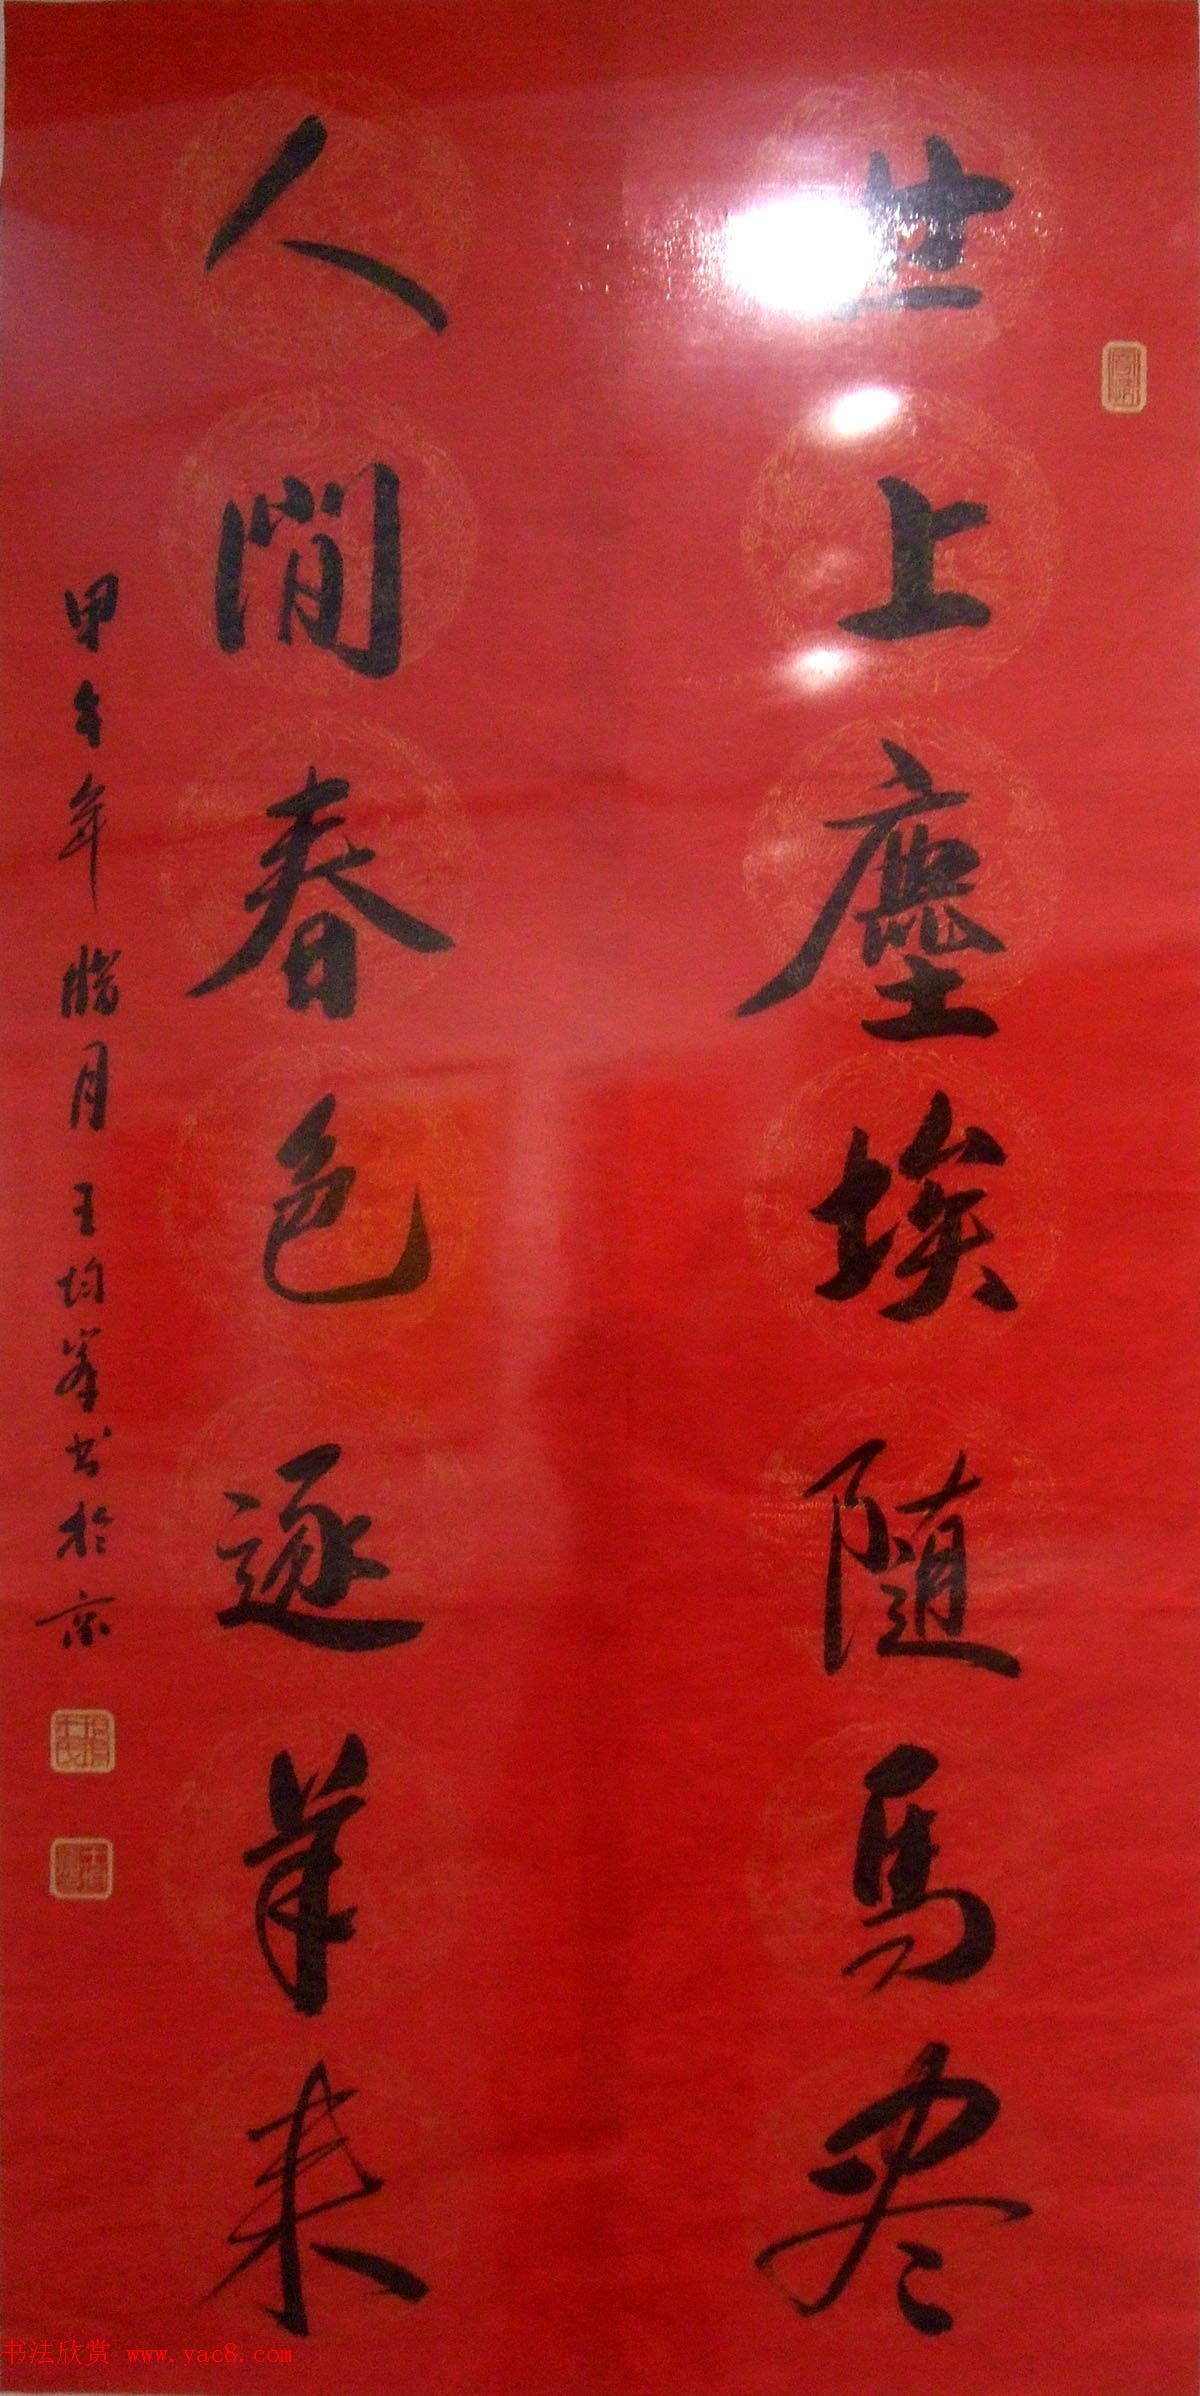 世上塵埃随馬尽
人間春色逐羊来
甲午年臘月王均峯书於京
书法欣赏 www.yac8.com